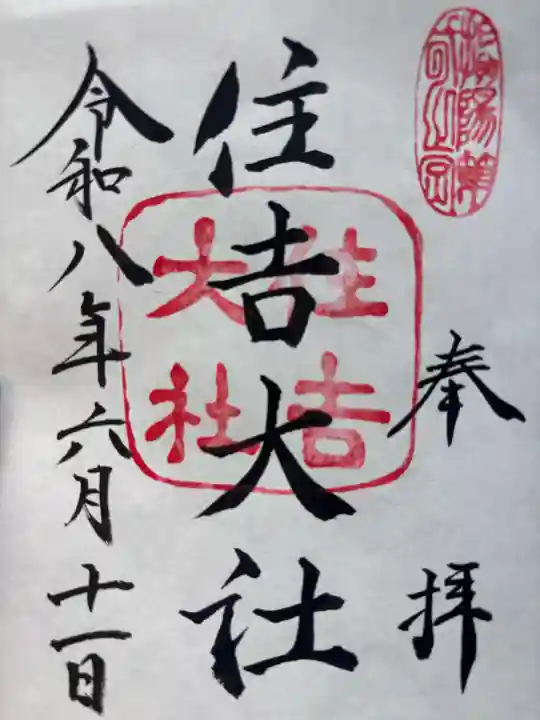 奉拝
住吉大社
住吉大社
令和八年六月十一日